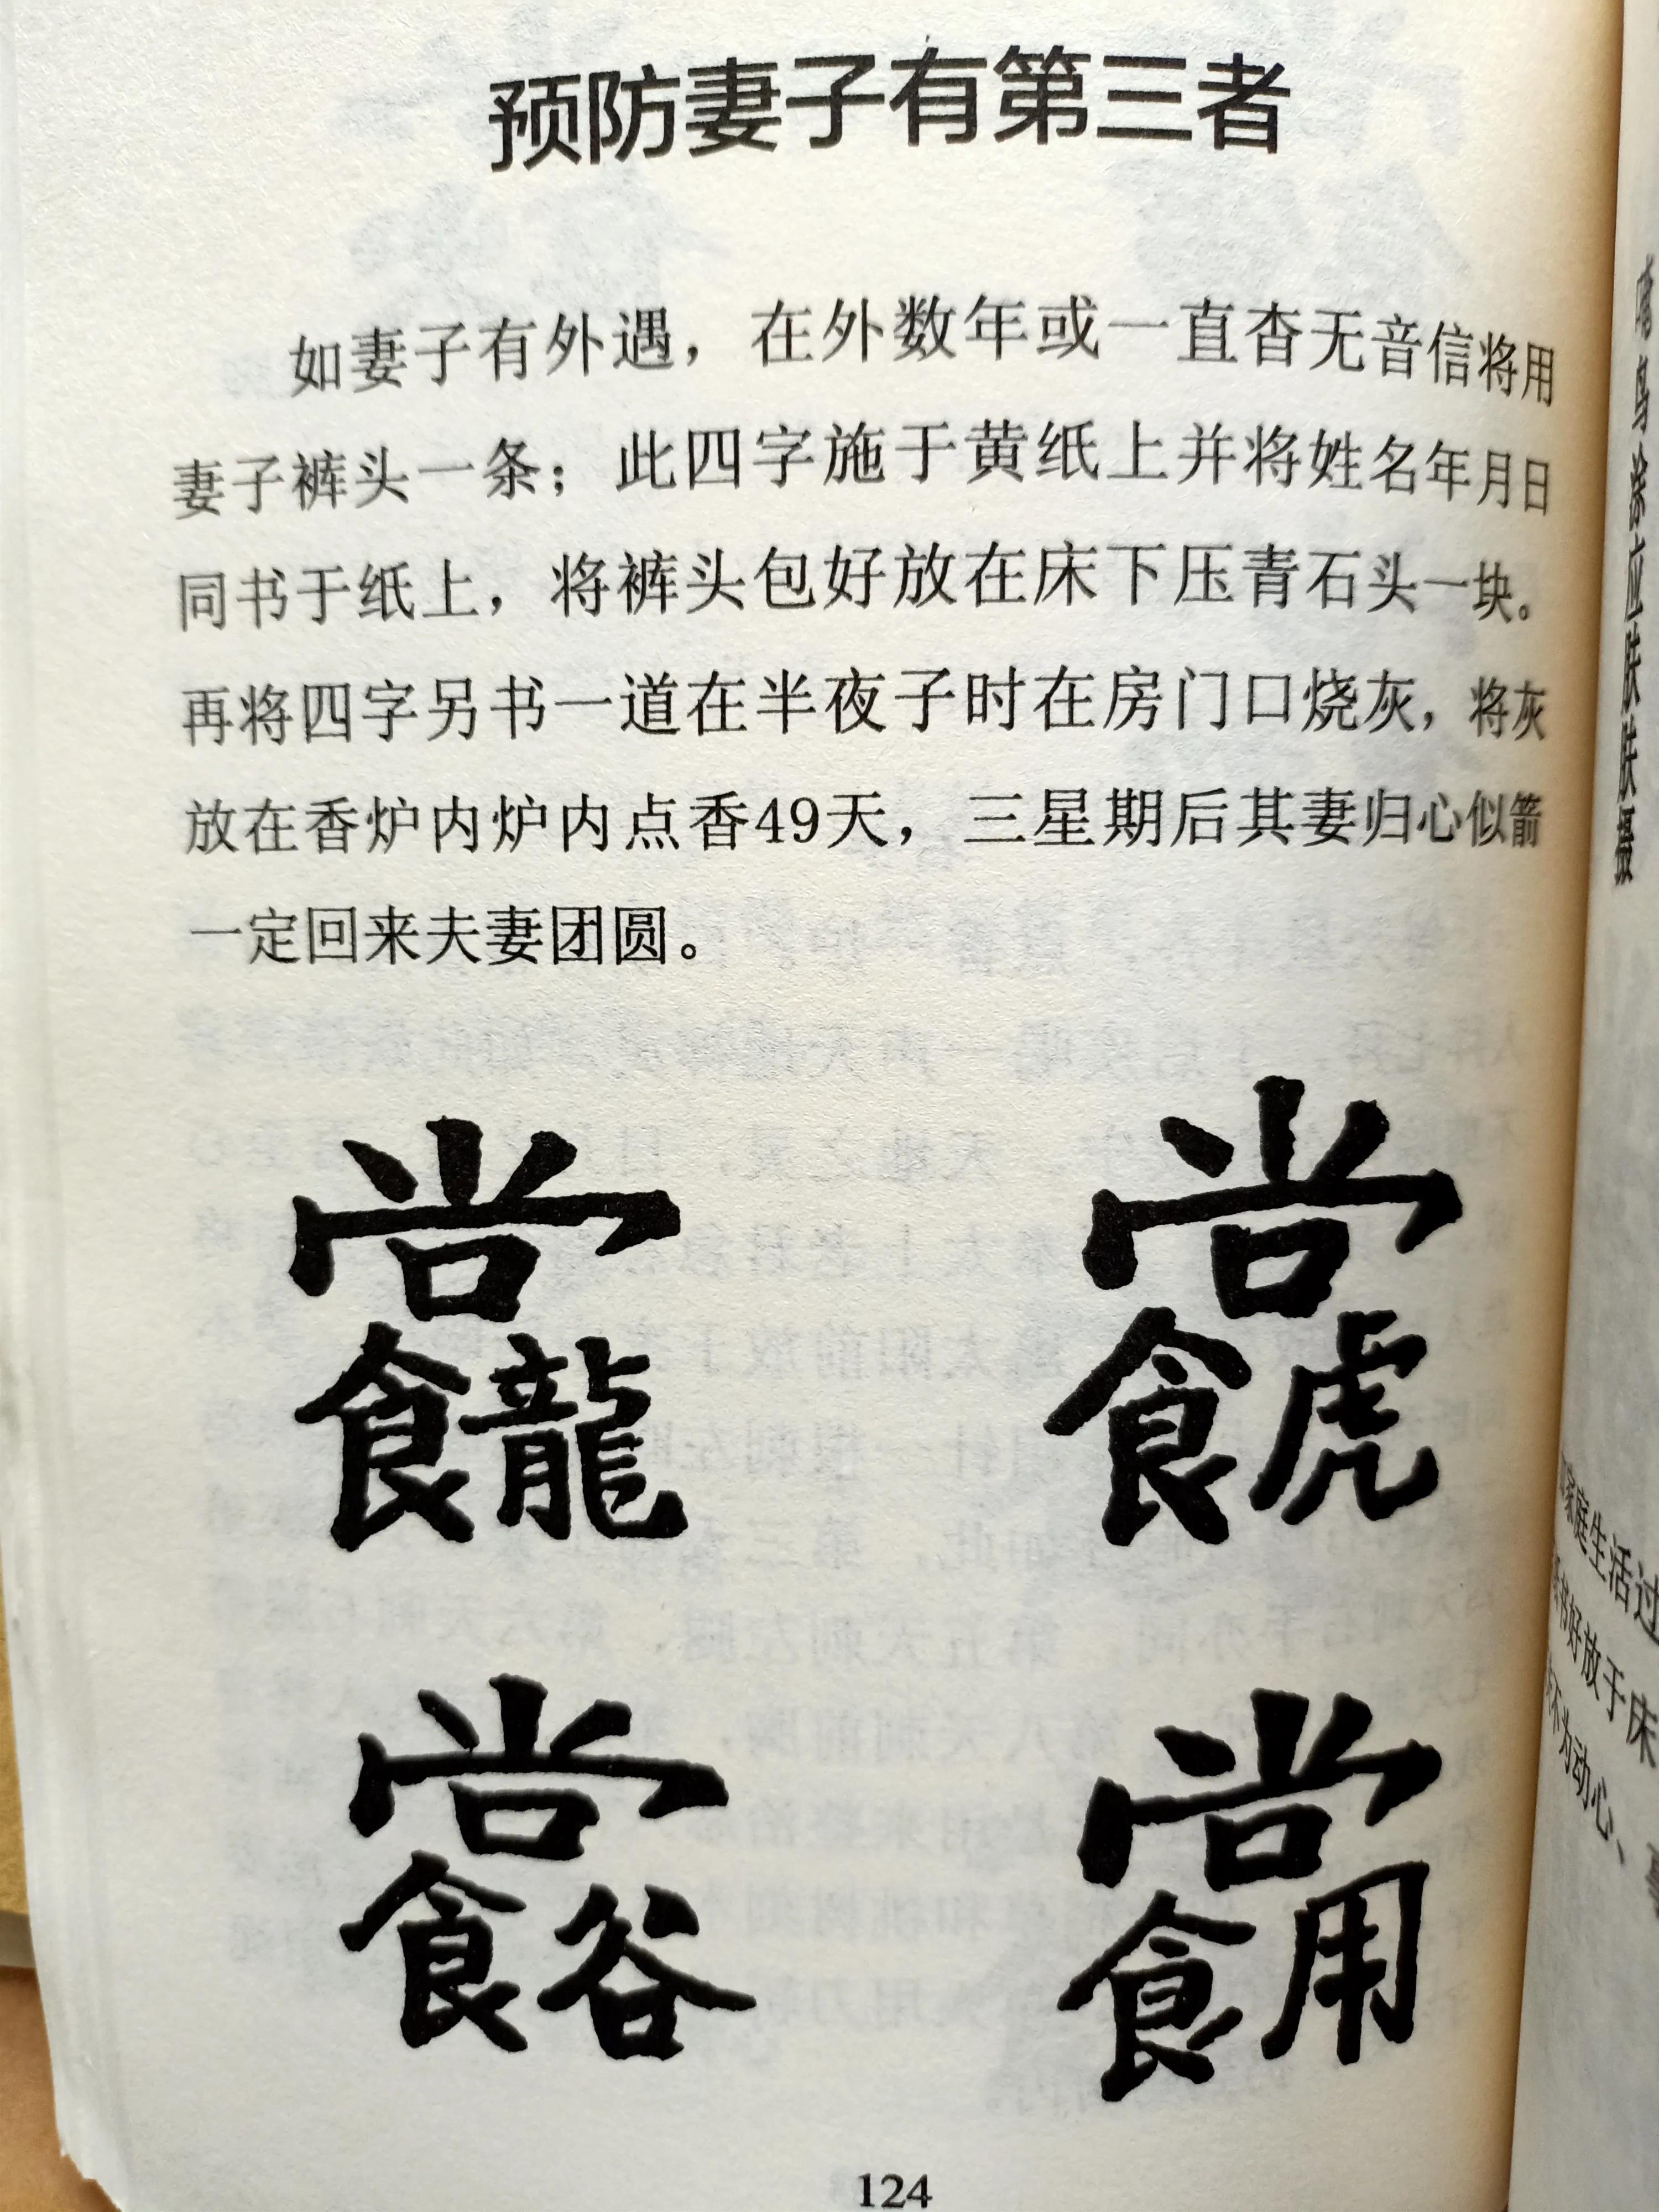 预防妻子有第三者
如妻子有外遇，在外数年或一直杳无音信将用
妻子裤头一条；此四字施于黄纸上并将姓名年月日
同书于纸上，将裤头包好放在床下压青石头一块。
再将四字另书一道在半夜子时在房门口烧灰，将灰
放在香炉内炉内点香49天，三星期后其妻归心似箭
一定回来夫妻团圆。
尚食龍 尚食虎
尚食谷 尚食用
124
家庭生活过
书好放于床
不为动心、